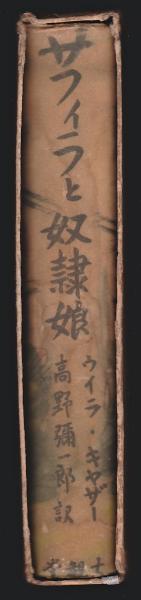 サフィラと奴隷娘
ウイラ・キャザー
高野彌一郎訳